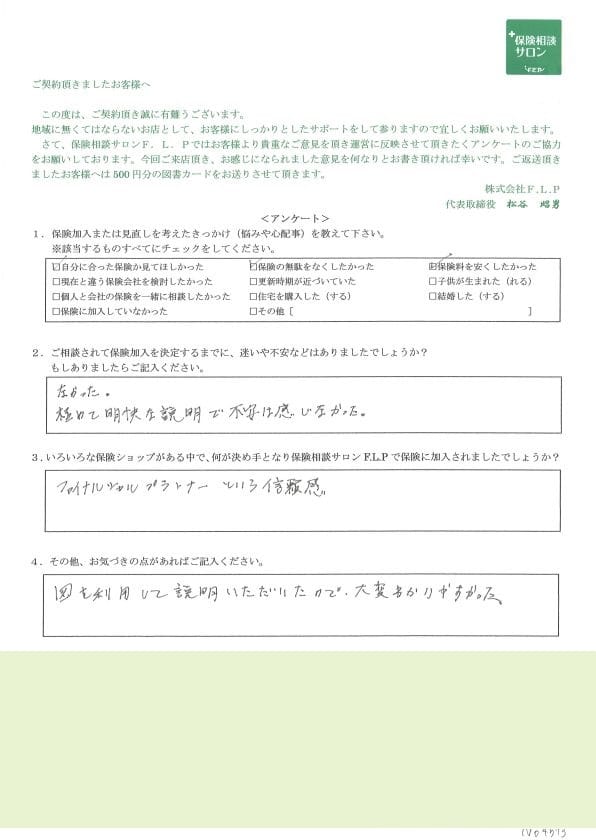 +保険相談
サロン
F.L.P
ご契約頂きましたお客様へ
この度は、ご契約頂き誠に有難うございます。
地域に無くてはならないお店として、お客様にしっかりとしたサポートをして参りますので宜しくお願いいたします。
さて、保険相談サロンF．L．Pではお客様より貴重なご意見を頂き運営に反映させて頂きたくアンケートのご協力
をお願いしております。今回ご来店頂き、お感じになられました意見を何なりとお書き頂ければ幸いです。ご返送頂き
ましたお客様へは500円分の図書カードをお送りさせて頂きます。
株式会社F.L.P
代表取締役 松谷 昭男
＜アンケート＞
１．保険加入または見直しを考えたきっかけ（悩みや心配事）を教えて下さい。
※該当するものすべてにチェックをしてください。
☑自分に合った保険か見てほしかった ☑保険の無駄をなくしたかった ☑保険料を安くしたかった
□現在と違う保険会社を検討したかった □更新時期が近づいていた □子供が生まれた（れる）
□個人と会社の保険を一緒に相談したかった □住宅を購入した（する） □結婚した（する）
□保険に加入していなかった □その他［ ］
２．ご相談されて保険加入を決定するまでに、迷いや不安などはありましたでしょうか？
もしありましたらご記入ください。
なかった。
極めて明快な説明で不安は感じなかった。
３．いろいろな保険ショップがある中で、何が決め手となり保険相談サロンF.L.Pで保険に加入されましたでしょうか？
ファイナルシャルプラナーという信頼感
４．その他、お気づきの点があればご記入ください。
図を利用して説明いただいたので、大変わかりやすかった。